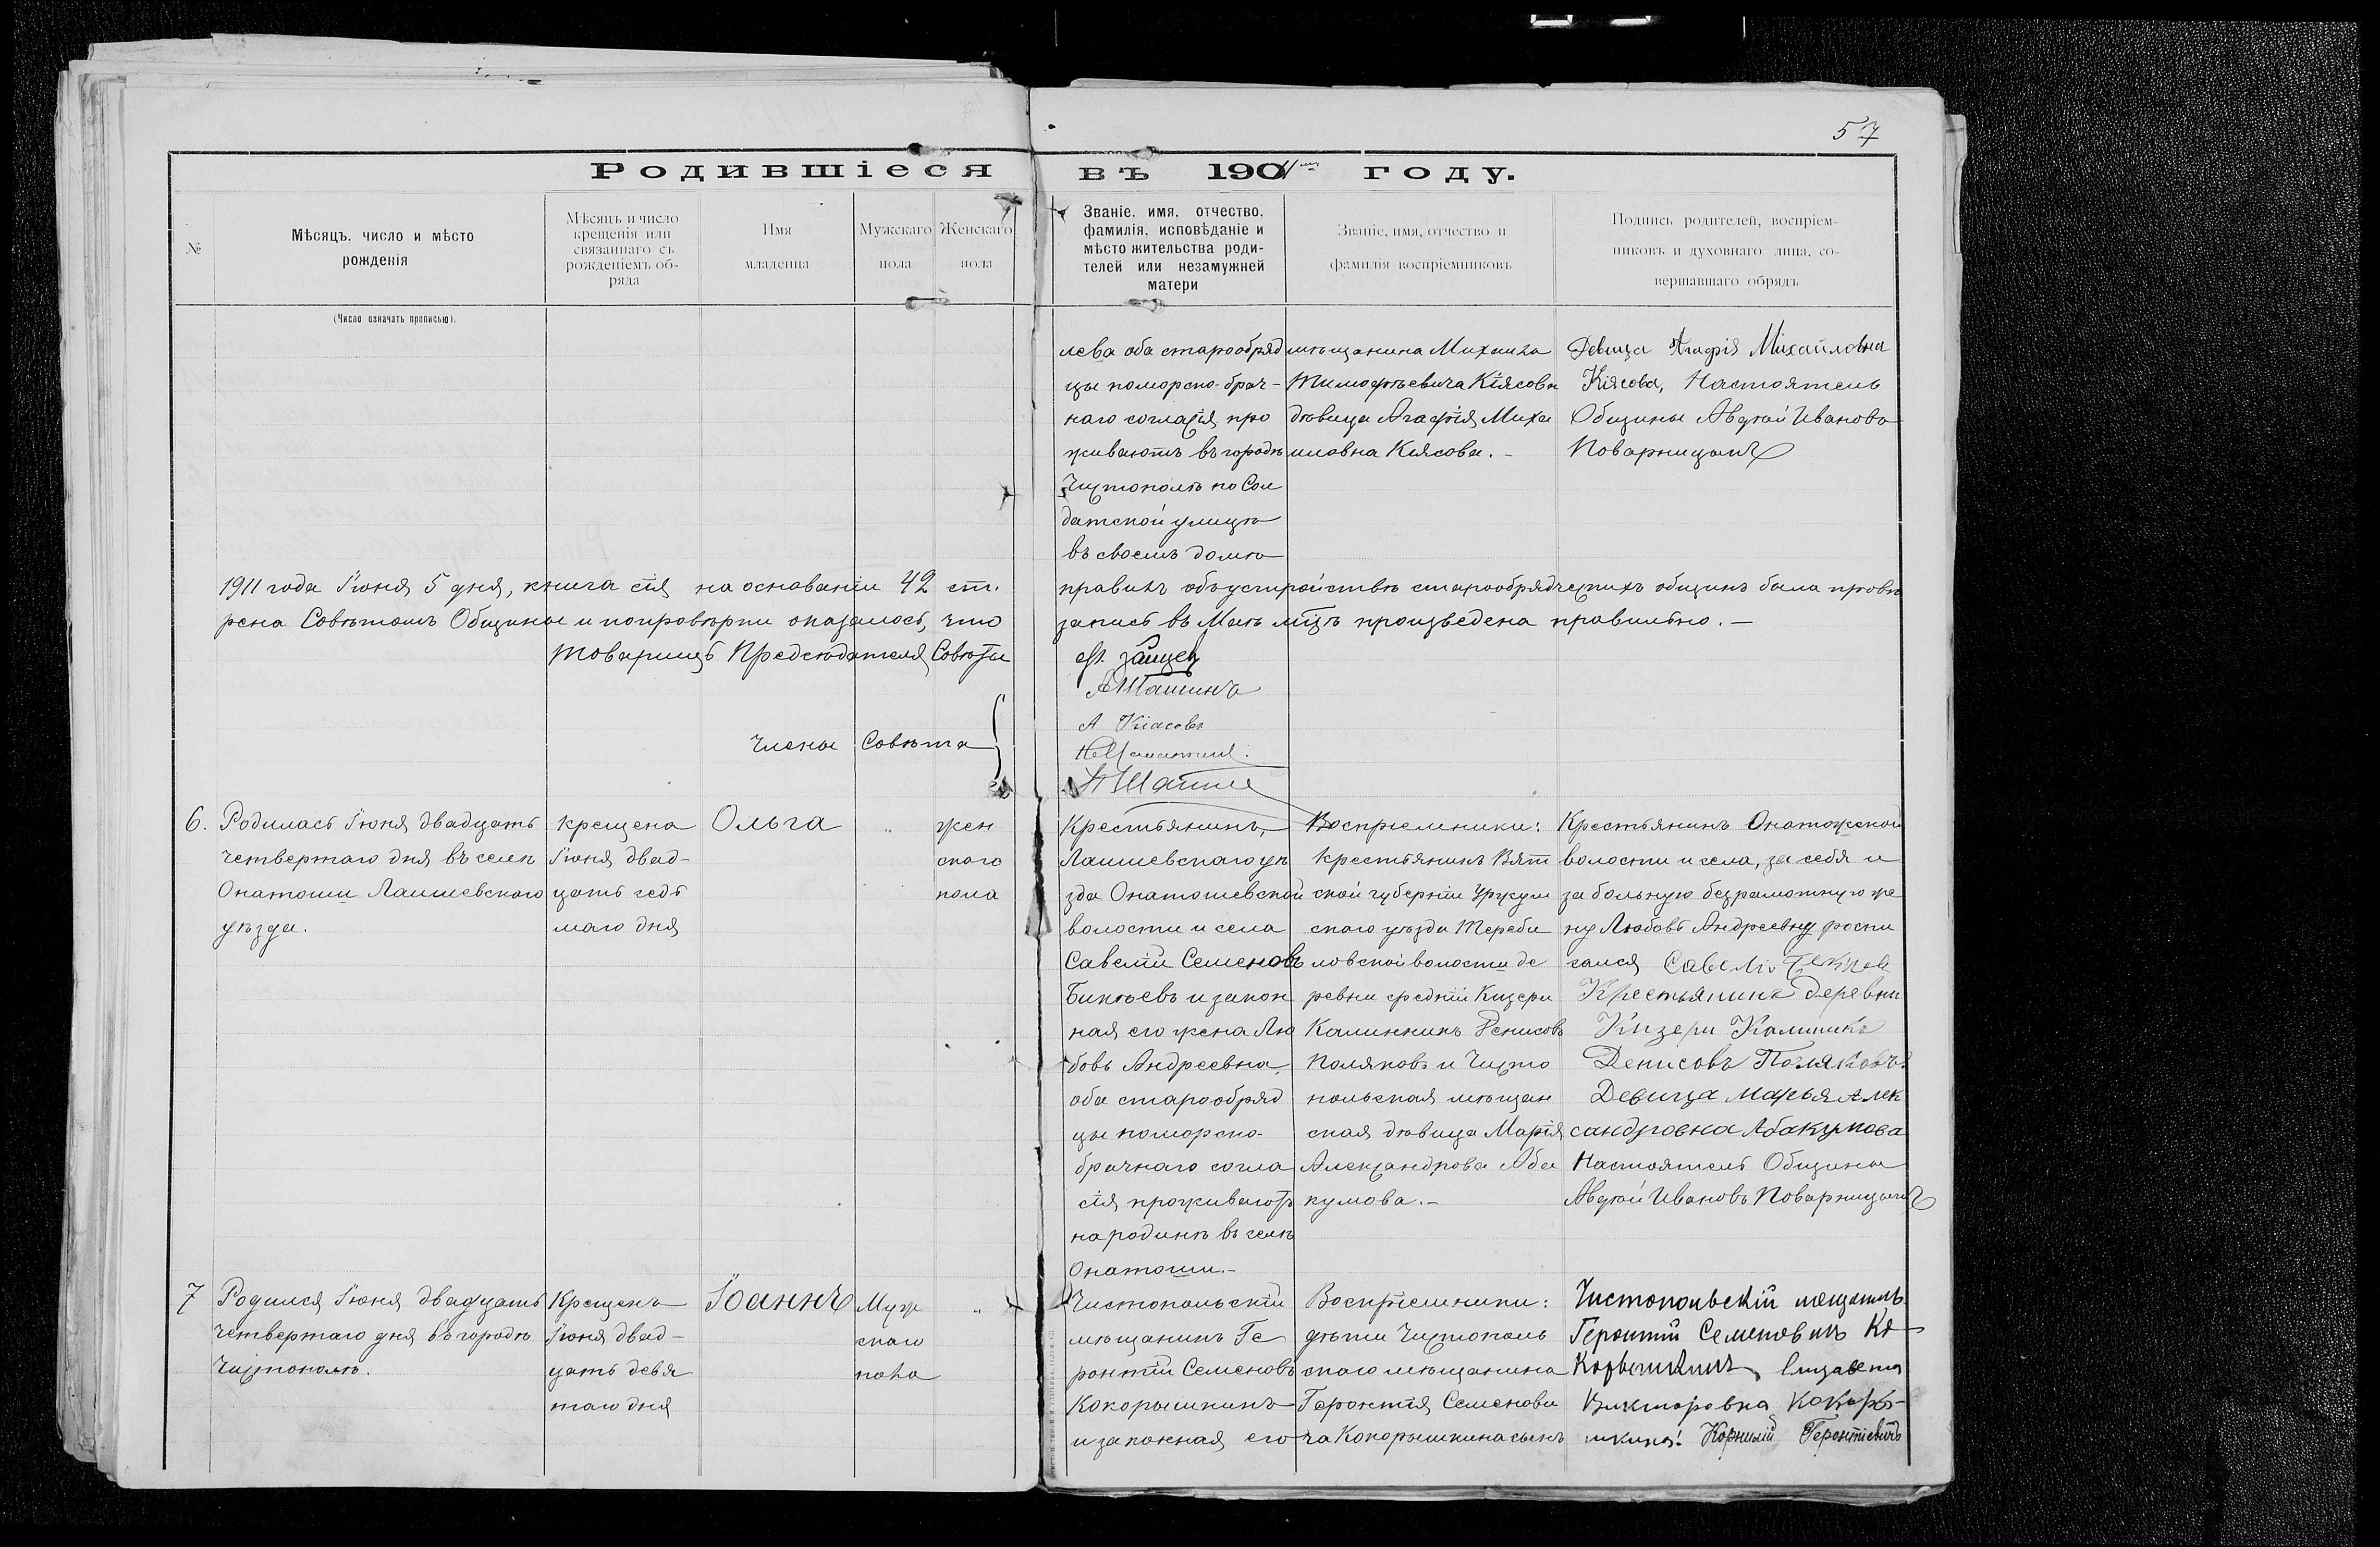 57
Родившіеся въ 1911мъ году.
№
Мѣсяцъ, число и мѣсто
рожденія
Мѣсяцъ и число
крещенія или
связаннаго съ
рожденіемъ об-
ряда
Имя
младенца
Мужскаго
пола
Женскаго
пола
Званіе, имя, отчество,
фамилія, исповѣданіе и
мѣсто жительства роди-
телей или незамужней
матери
Званіе, имя, отчество и
фамилія воспріемниковъ
Подпись родителей, воспріем-
никовъ и духовнаго лица, со-
вершавшаго обрядъ
(Число означать прописью).
лева оба старообряд
цы поморско-брач-
наго согласія, про
живаютъ въ городѣ
Чистополѣ по Сол
датской улицѣ
въ своемъ домѣ
мѣщанина Михаила
Тимофѣевича Кіясова
дѣвица Агафія Миха
иловна Киясова. -
Девица Агафія Михайловна
Кіясова, Настоятель
Общины Авдѣй Ивановъ
Поварницынъ
1911 года Іюня 5 дня, книга сія на основаніи 42 ст. правилъ объ устройствѣ старообрядческихъ общинъ была провѣ
рена Совѣтомъ Общины и по провѣрки оказалось, что запись въ Маѣ м-цѣ произведена правильно. -
Товарищъ Предсѣдателя Совѣта
Зайцев
А Кіасовъ
Члены Совѣта
6.
Родилась Іюня двадцать
четвертаго дня въ селѣ
Онатоши Лаишевскаго
уѣзда.
крещена
Іюня двад-
цать седь
маго дня
Ольга
"
жен
скаго
пола
Крестьянинъ,
Лаишевскаго уѣ
зда Онатошевской
волости и села
Савелій Семеновъ
Биктѣевъ и закон
ная его жена Лю
бовь Андреевна,
оба старообряд
цы поморско-
брачнаго согла
сія проживаютъ
на родинѣ въ селѣ
Онатоши. -
Воспріемники:
крестьянинъ Вят
ской губерніи Уржум
скаго уѣзда Тереби
ловской волости де
ревни средній Кизери
Калинникъ Денисовъ
Поляковъ и Чисто
польская мѣщан
ская дѣвица Марія
Александрова Аба
кумова. -
Крестьянинъ Онатожской
волости и села, за себя и
за больную безграмотную же
ну Любовь Андреевну роспи
сался Савелій
Крестьянинъ деревни
Кизери Калиникъ
Денисовъ Поляковъ
Девица Марья Алек
сандровна Абакумова
Настоятель Общины
Авдѣй Ивановъ Поварницынъ
7
Родился Іюня двадцать
четвертаго дня въ городѣ
Чистополѣ.
Крещенъ
Іюня двад-
цать девя
таго дня
Іоаннъ
Муж
скаго
пола
"
Чистопольскій
мѣщанинъ Ге
ронтій Семеновъ
Кокорышкинъ
и законная его
Воспріемники:
дѣти Чистополь
скаго мѣщанина
Геронтія Семенови
ча Кокорышкина сынъ
Чистопольскій мещанинъ
Геронтій Семеновичъ Ко
Елизавета
Викторовна Кокоры-
шкина! Корнилій Геронтіевичъ